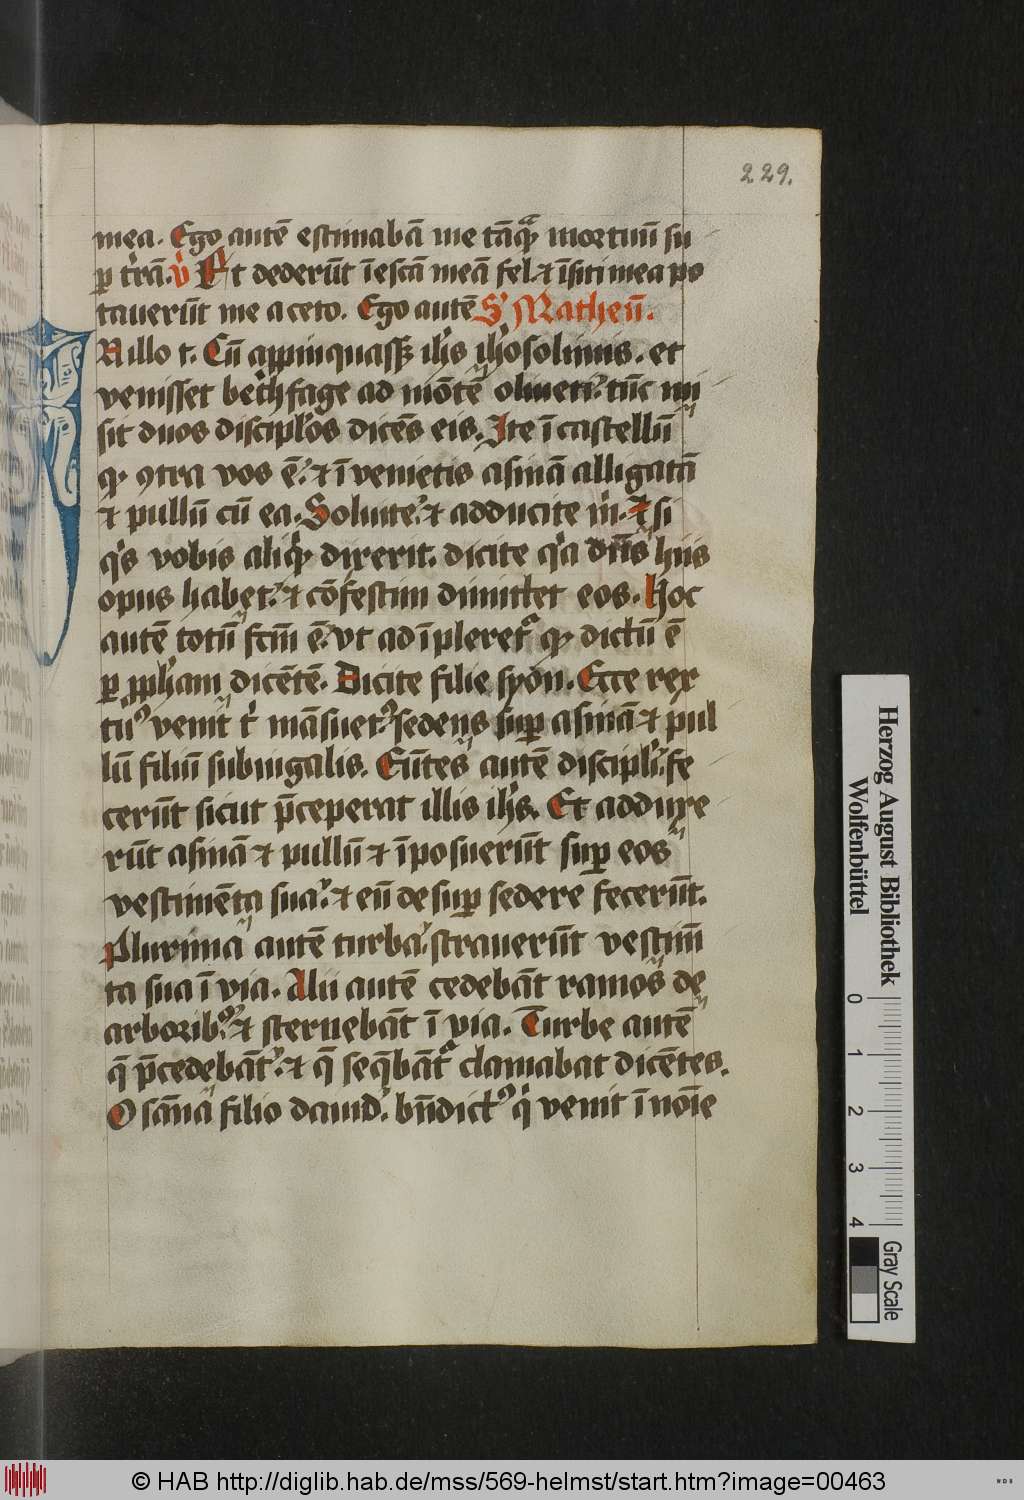 229.
mea. Ego autē estimabā me tāqꝫ mortuū su
ꝑ t̄rā. v̄ Et dederūt ī escā meā fel. ⁊ ī siti mea po
tauerūt me aceto. Ego autē S' Matheū.
N illo t. Cū appinquassꝫ ih̄s ih̄osolimis. et
venisset bethfage ad mōtē oliueti. tūc mi
sit duos discipl̄os dicēs eis. Ite ī castellū
qͩ ꝯtra vos ē. ⁊ īvenietis asinā alligatā
⁊ pullū cū ea. Soluite. ⁊ adducite m̄. Et si
qͥs vobis aliqͩ dixerit. dicite qͥa dn̄s hiis
opus habet. ⁊ cōfestim dimittet eos. Hoc
autē totū fcm̄ ē. vt adīpleretᷣ qͩ dictū ē
ꝑ ꝓph̄am dicētē. Dicite filie syon. Ecce rex
tuꝰ venit t̄ māsuetꝰ. sedens suꝑ asinā ⁊ pul
lū filiū subiugalis. Eūtes autē discipl̄i. fe
cerūt sicut p̄ceperat illis ih̄s. Et adduxe
rūt asinā ⁊ pullū ⁊ īposuerūt suꝑ eos
vestimēta sua. ⁊ eū desuꝑ sedere fecerūt.
Plurima autē turba. strauerūt vestim̄
ta sua ī via. Alii autē cedebāt ramos de
arboribꝰ. ⁊ sternebāt ī via. Turbe autē
q̄ p̄cedebāt. ⁊ q̄ seq̄bātᷣ clamabat dicētes.
Osāna filio dauid. bn̄dictꝰ qͥ venit ī noīe
Herzog August Bibliothek
Wolfenbüttel
0 1 2 3 4
Gray Scale
© HAB http://diglib.hab.de/mss/569-helmst/start.htm?image=00463